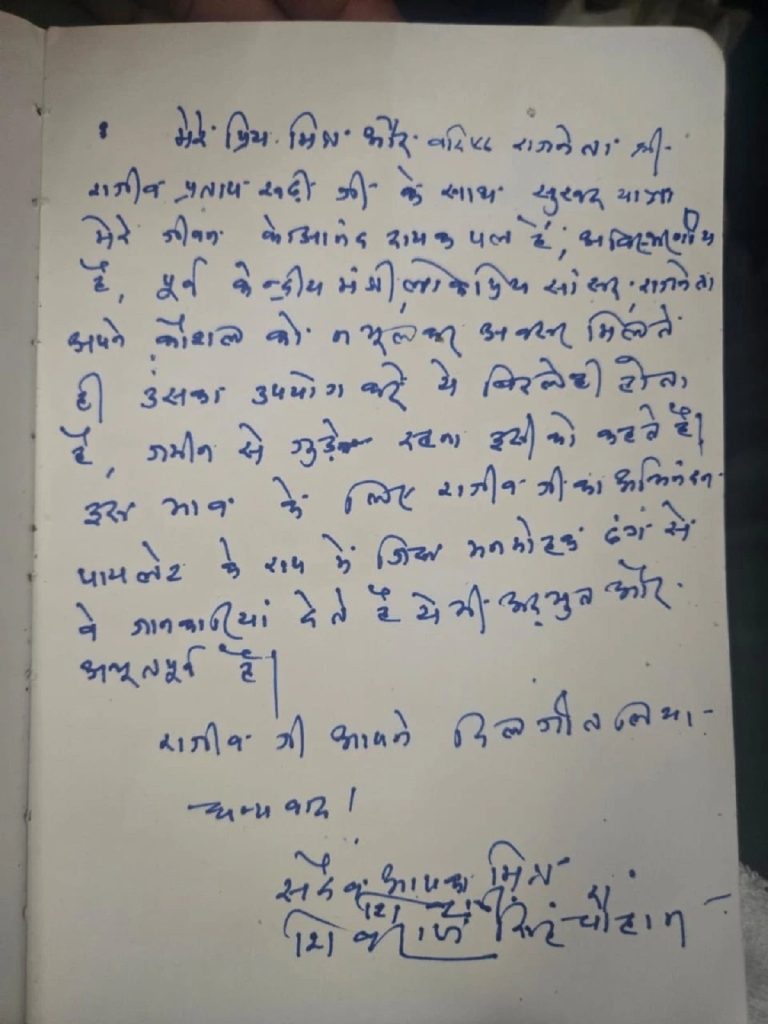 मेरे प्रिय मित्र और वरिष्ठ राजनेता श्री
राजीव प्रताप रूडी जी के साथ सुखद यात्रा
मेरे जीवन के आनंद दायक पल हैं, अविस्मरणीय
है, पूर्व केन्द्रीय मंत्री, लोकप्रिय सांसद, राजनेता
अपने कौशल को न भूलकर अवसर मिलते
ही उसका उपयोग करे ये विरले ही होता
है, जमीन से जुड़े रहना इसी को कहते हैं।
इस भाव के लिए राजीव जी का अभिनंदन
पायलेट के रूप में जिस मनमोहक ढंग से
वे जानकारियां देते हैं ये भी अद्भुत और
अभूतपूर्व है।
राजीव जी आपने दिल जीत लिया
धन्यवाद।
सदैव आपका मित्र
शिवराज सिंह चौहान